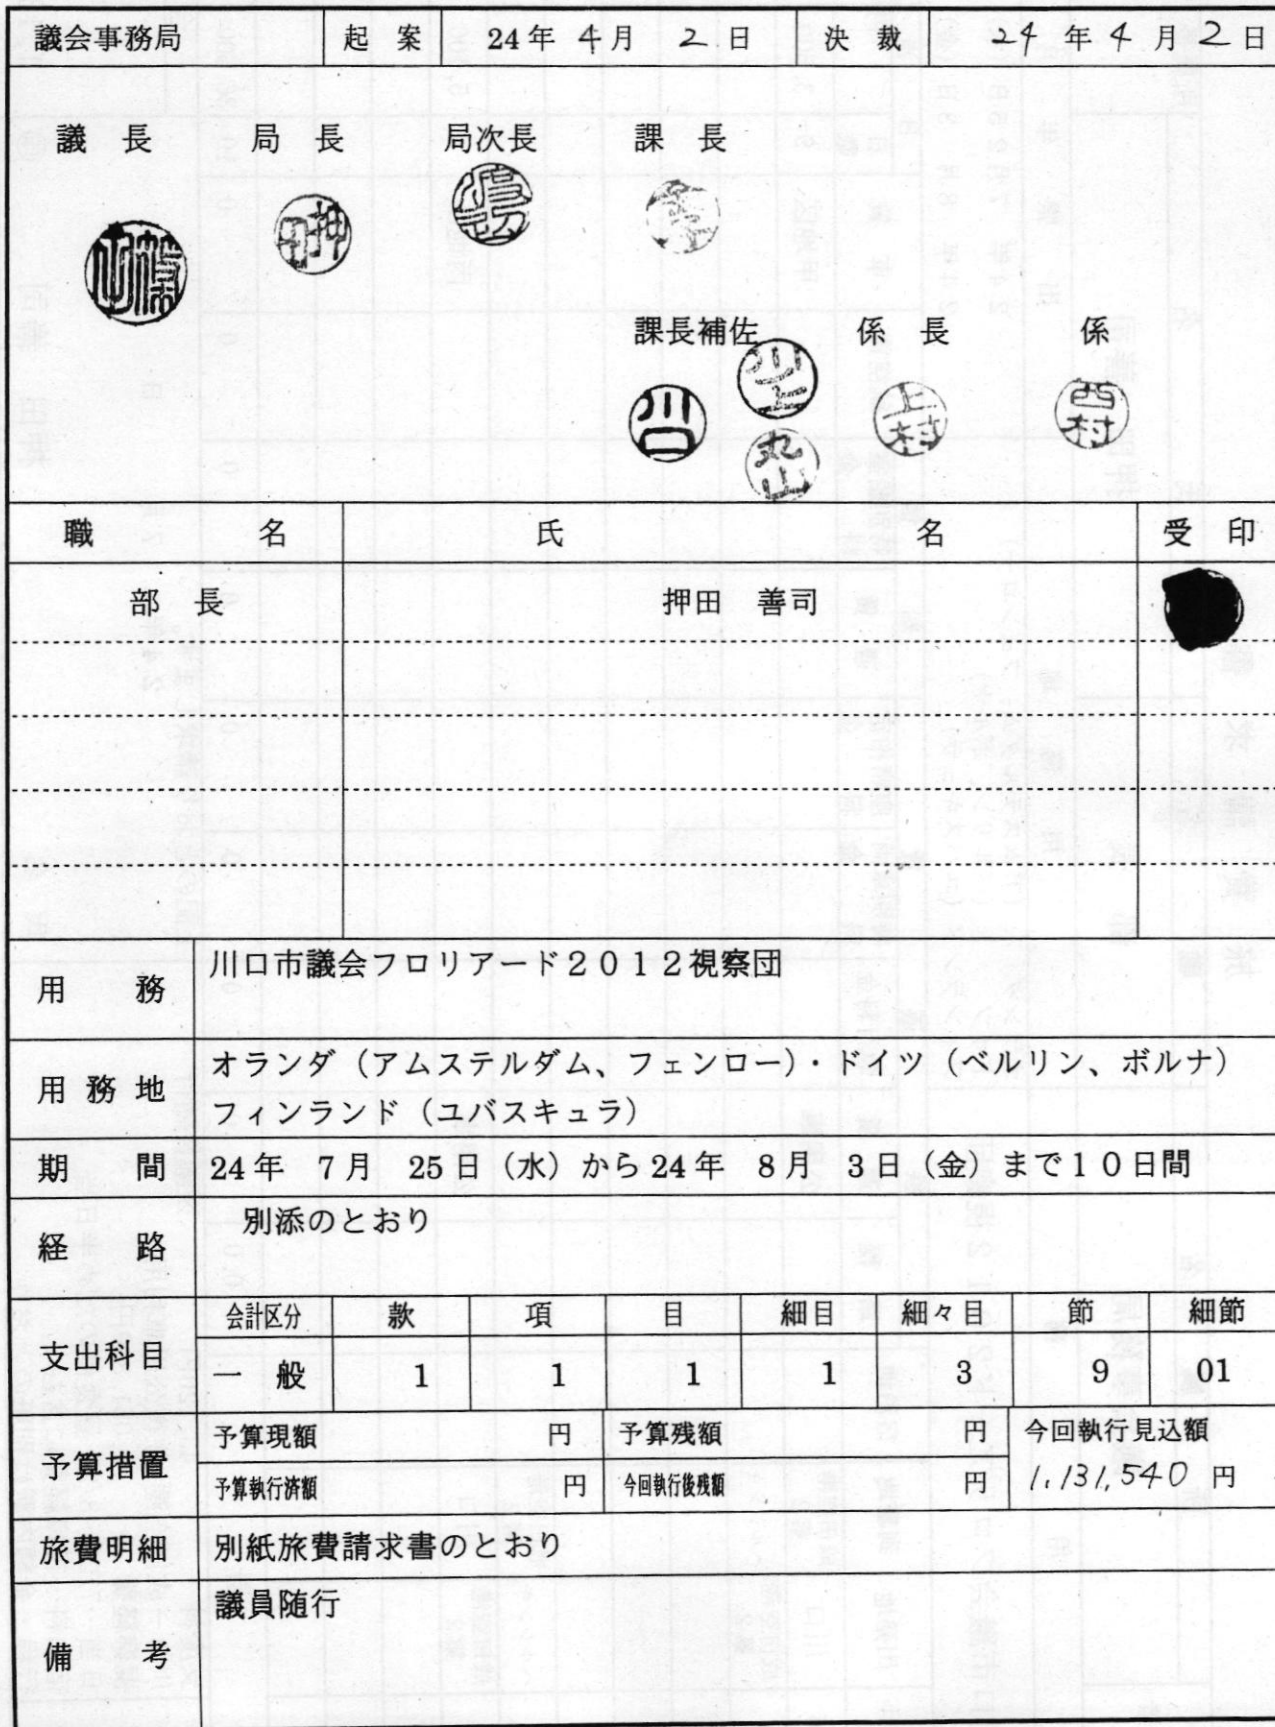 議会事務局 起案 24年 4月 2日 決裁 24年 4月 2日
議長 局長 局次長 課長
押田
課長補佐 係長 係
川口 川上 丸山 上村 西村
職名 氏名 受印
部長 押田 善司
用務 川口市議会フロリアード2012視察団
用務地 オランダ（アムステルダム、フェンロー）・ドイツ（ベルリン、ボルナ）
フィンランド（ユバスキュラ）
期間 24年 7月 25日（水）から24年 8月 3日（金）まで10日間
経路 別添のとおり
支出科目 会計区分 款 項 目 細目 細々目 節 細節
一般 1 1 1 1 3 9 01
予算措置 予算現額 円 予算残額 円 今回執行見込額
予算執行済額 円 今回執行後残額 円 1,131,540円
旅費明細 別紙旅費請求書のとおり
備考 議員随行